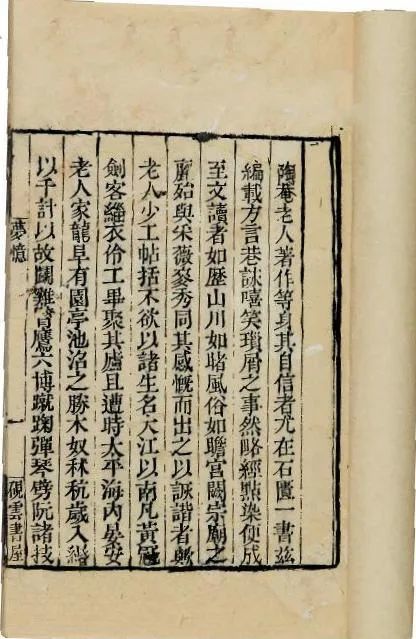 陶菴老人著作等身其自信者尤在石匱一書茲
編載方言巷詠嘻笑瑣屑之事然略經點染便成
至文讀者如歷山川如睹風俗如瞻宮闕宗廟之
麗殆與采薇麥秀同其感慨而出之以詼諧者歟
老人少工帖括不欲以諸生名大江以南凡黃冠
劍客緇衣伶工畢聚其廬且遭時太平海內晏安
老人家龍阜有園亭池沼之勝木奴秫秔歲入緡
以千計以故鬬雞臂鷹六博蹴踘彈琴劈阮諸技
夢憶
一
硯雲書屋